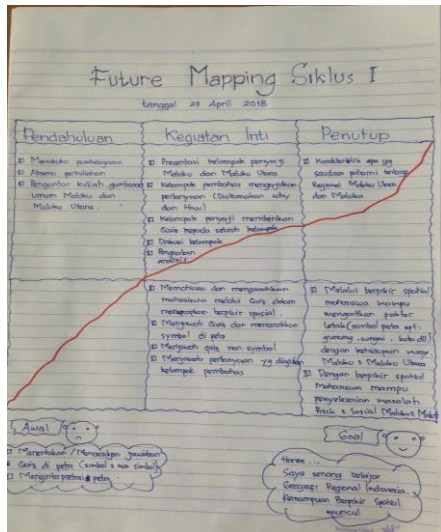 Future Mapping Siklus I
tanggal 23 April 2018
Pendahuluan
Membuka pembelajaran
Absensi perkuliahan
Pengantar kuliah gambaran
umum Maluku dan
Maluku Utara
Kegiatan Inti
Presentasi kelompok penyaji
Maluku dan Maluku Utara
Kelompok pembahas mengajukan
pertanyaan (Diutamakan Why
dan How)
Kelompok penyaji memberikan
Quis kepada seluruh kelompok
Diskusi kelompok
Penguatan
analisis
Penutup
Karakteristik apa yg
saudara pahami tentang
Regional Maluku Utara
dan Maluku
Memotivasi dan mengarahkan
mahasiswa melalui Quis dalam
menerapkan berpikir spasial.
Menjawab Quis dan mencocokkan
symbol di peta
Menjawab quis non symbol
Menjawab pertanyaan yg diajukan
kelompok pembahas
Melalui berpikir spatial
mahasiswa mampu
mengaitkan faktor
letak (simbol peta spt:
gunung, sungai, kota dll)
dengan kehidupan
Maluku & Maluku Utara
Dengan berpikir spatial
mahasiswa mampu
penyelesaian masalah
fisik & sosial Maluku &
Awal
Menentukan / Mencocokan jawaban
Quis di peta (simbol & non simbol)
Menginterpretasi peta
Goal
Horee...
Saya senang belajar
Geografi Regional Indonesia.
Kemampuan Berpikir Spatial
muncul